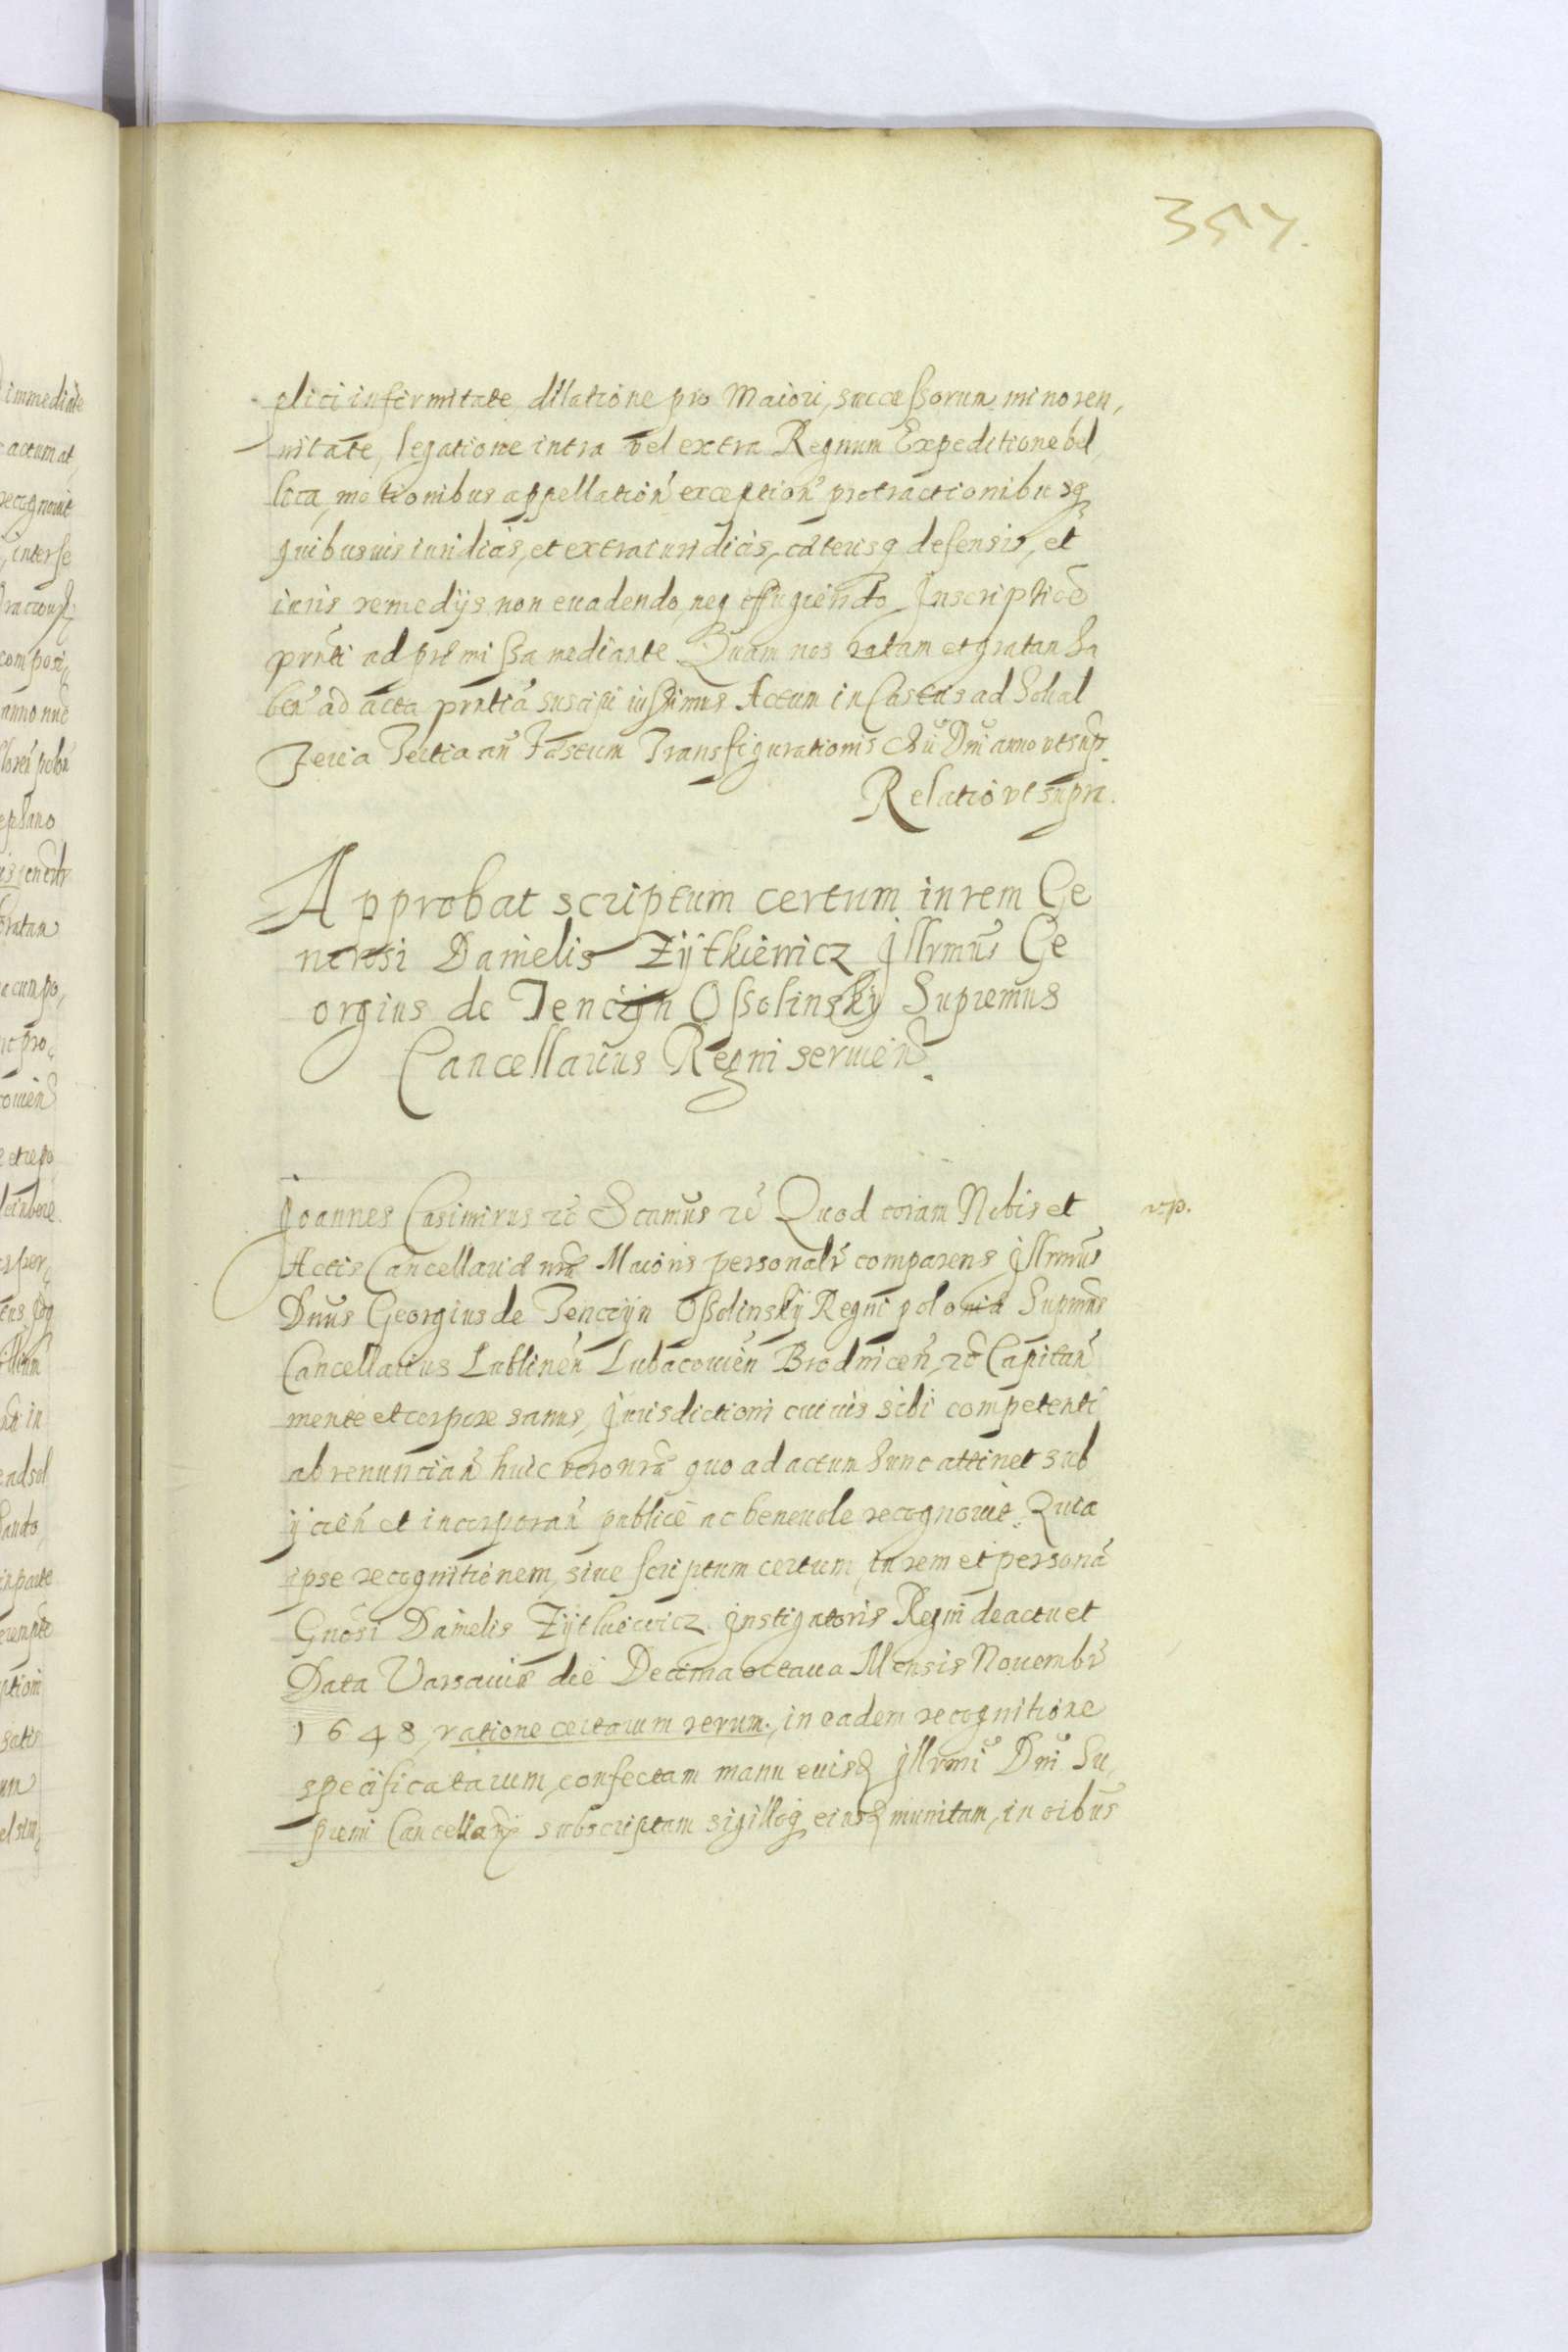 357.
plici infirmitate dilatione pro Maiori, successorum minoren,
nitate, legatione intra vel extra Regnum Expeditione bel
lica, motionibus appellation̄ exception̄ protractionibusq
quibusuis iuridicis, et extraiuridicis, cæterisq defensis, et
iuris remedijs non euadendo neq effugiendo Inscriptioē
prn̄ti ad præmissa mediante Quam nos ratam et gratam ha
ben̄ ad acta prn̄tiā suscipi iussimus Actum in Castris ad Sokal
Feria Tertia an̄ Festum Transfigurationis Chū Dnī anno vt sup.
Relatio vt supra.
Approbat scriptum certum in rem Ge
nerosi Danielis Żÿtkiewicz Jllrmūs Ge
orgius de Tenczÿn Ossolinskÿ Supremus
Cancellarius Regni seruien̄.
Joannes Casimirus rc̄ Scamūs rc̄ Quod coram Nobis et
Actis Cancellariæ nr̄æ Maioris personalr̄ comparens Jllrmūs
Dnūs Georgius de Tenczÿn Ossolinskÿ Regni poloniæ Supmūs
Cancellarius Lublinen̄ Lubacouien̄ Brodnicen̄, rc̄ Capitan̄
mente et corpore sanus, Jurisdictioni cuiuis sibi competenti
ab renuncian̄ huic vero nr̄æ quo ad actum hunc attinet sub
ÿcien̄ et incorporan̄ publicē ac beneuole recognouit. Quia
ipse recognitionem, siue scriptum certum, in rem et personā
Gnōsi Danielis Żÿtkiewicz Jnstigatoris Regni de actu et
Data Varsauiæ die Decima octaua Mensis Nouembr̄
1648 ratione certarum rerum, in eadem recognitione
specificatarum, confectam manu eiusd Jllrmī Dnī Su,
premi Cancellarÿ subscriptam sigilloq eiusd munitam, in oibūs